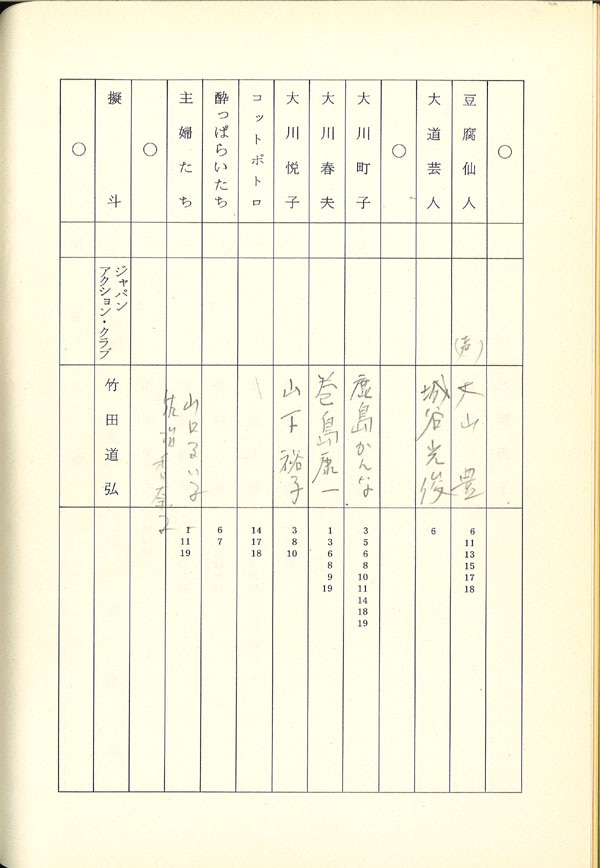 ○
豆腐仙人
(声)
大山豊
6
11
13
15
17
18
大道芸人
城谷光俊
6
○
大川町子
鹿島かんな
3
5
6
8
10
11
14
18
19
大川春夫
巻島康一
1
3
6
8
9
19
大川悦子
山下裕子
3
8
10
コットポトロ
14
17
18
酔っぱらいたち
6
7
主婦たち
山口るい子
佐曽香奈子
1
11
19
○
擬斗
ジャパン
アクション・クラブ
竹田道弘
○